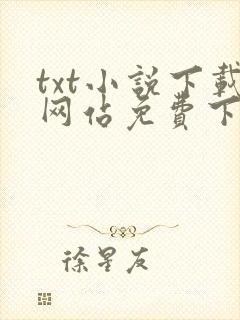 txt小説下載
网佔免費下
徐星友